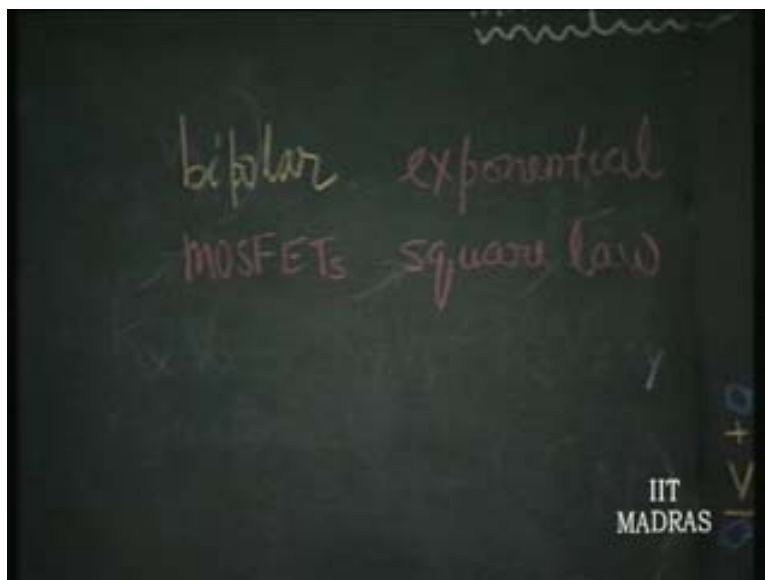 bipolar exponential
MOSFETs square law
y
O
+
V
IIT
MADRAS